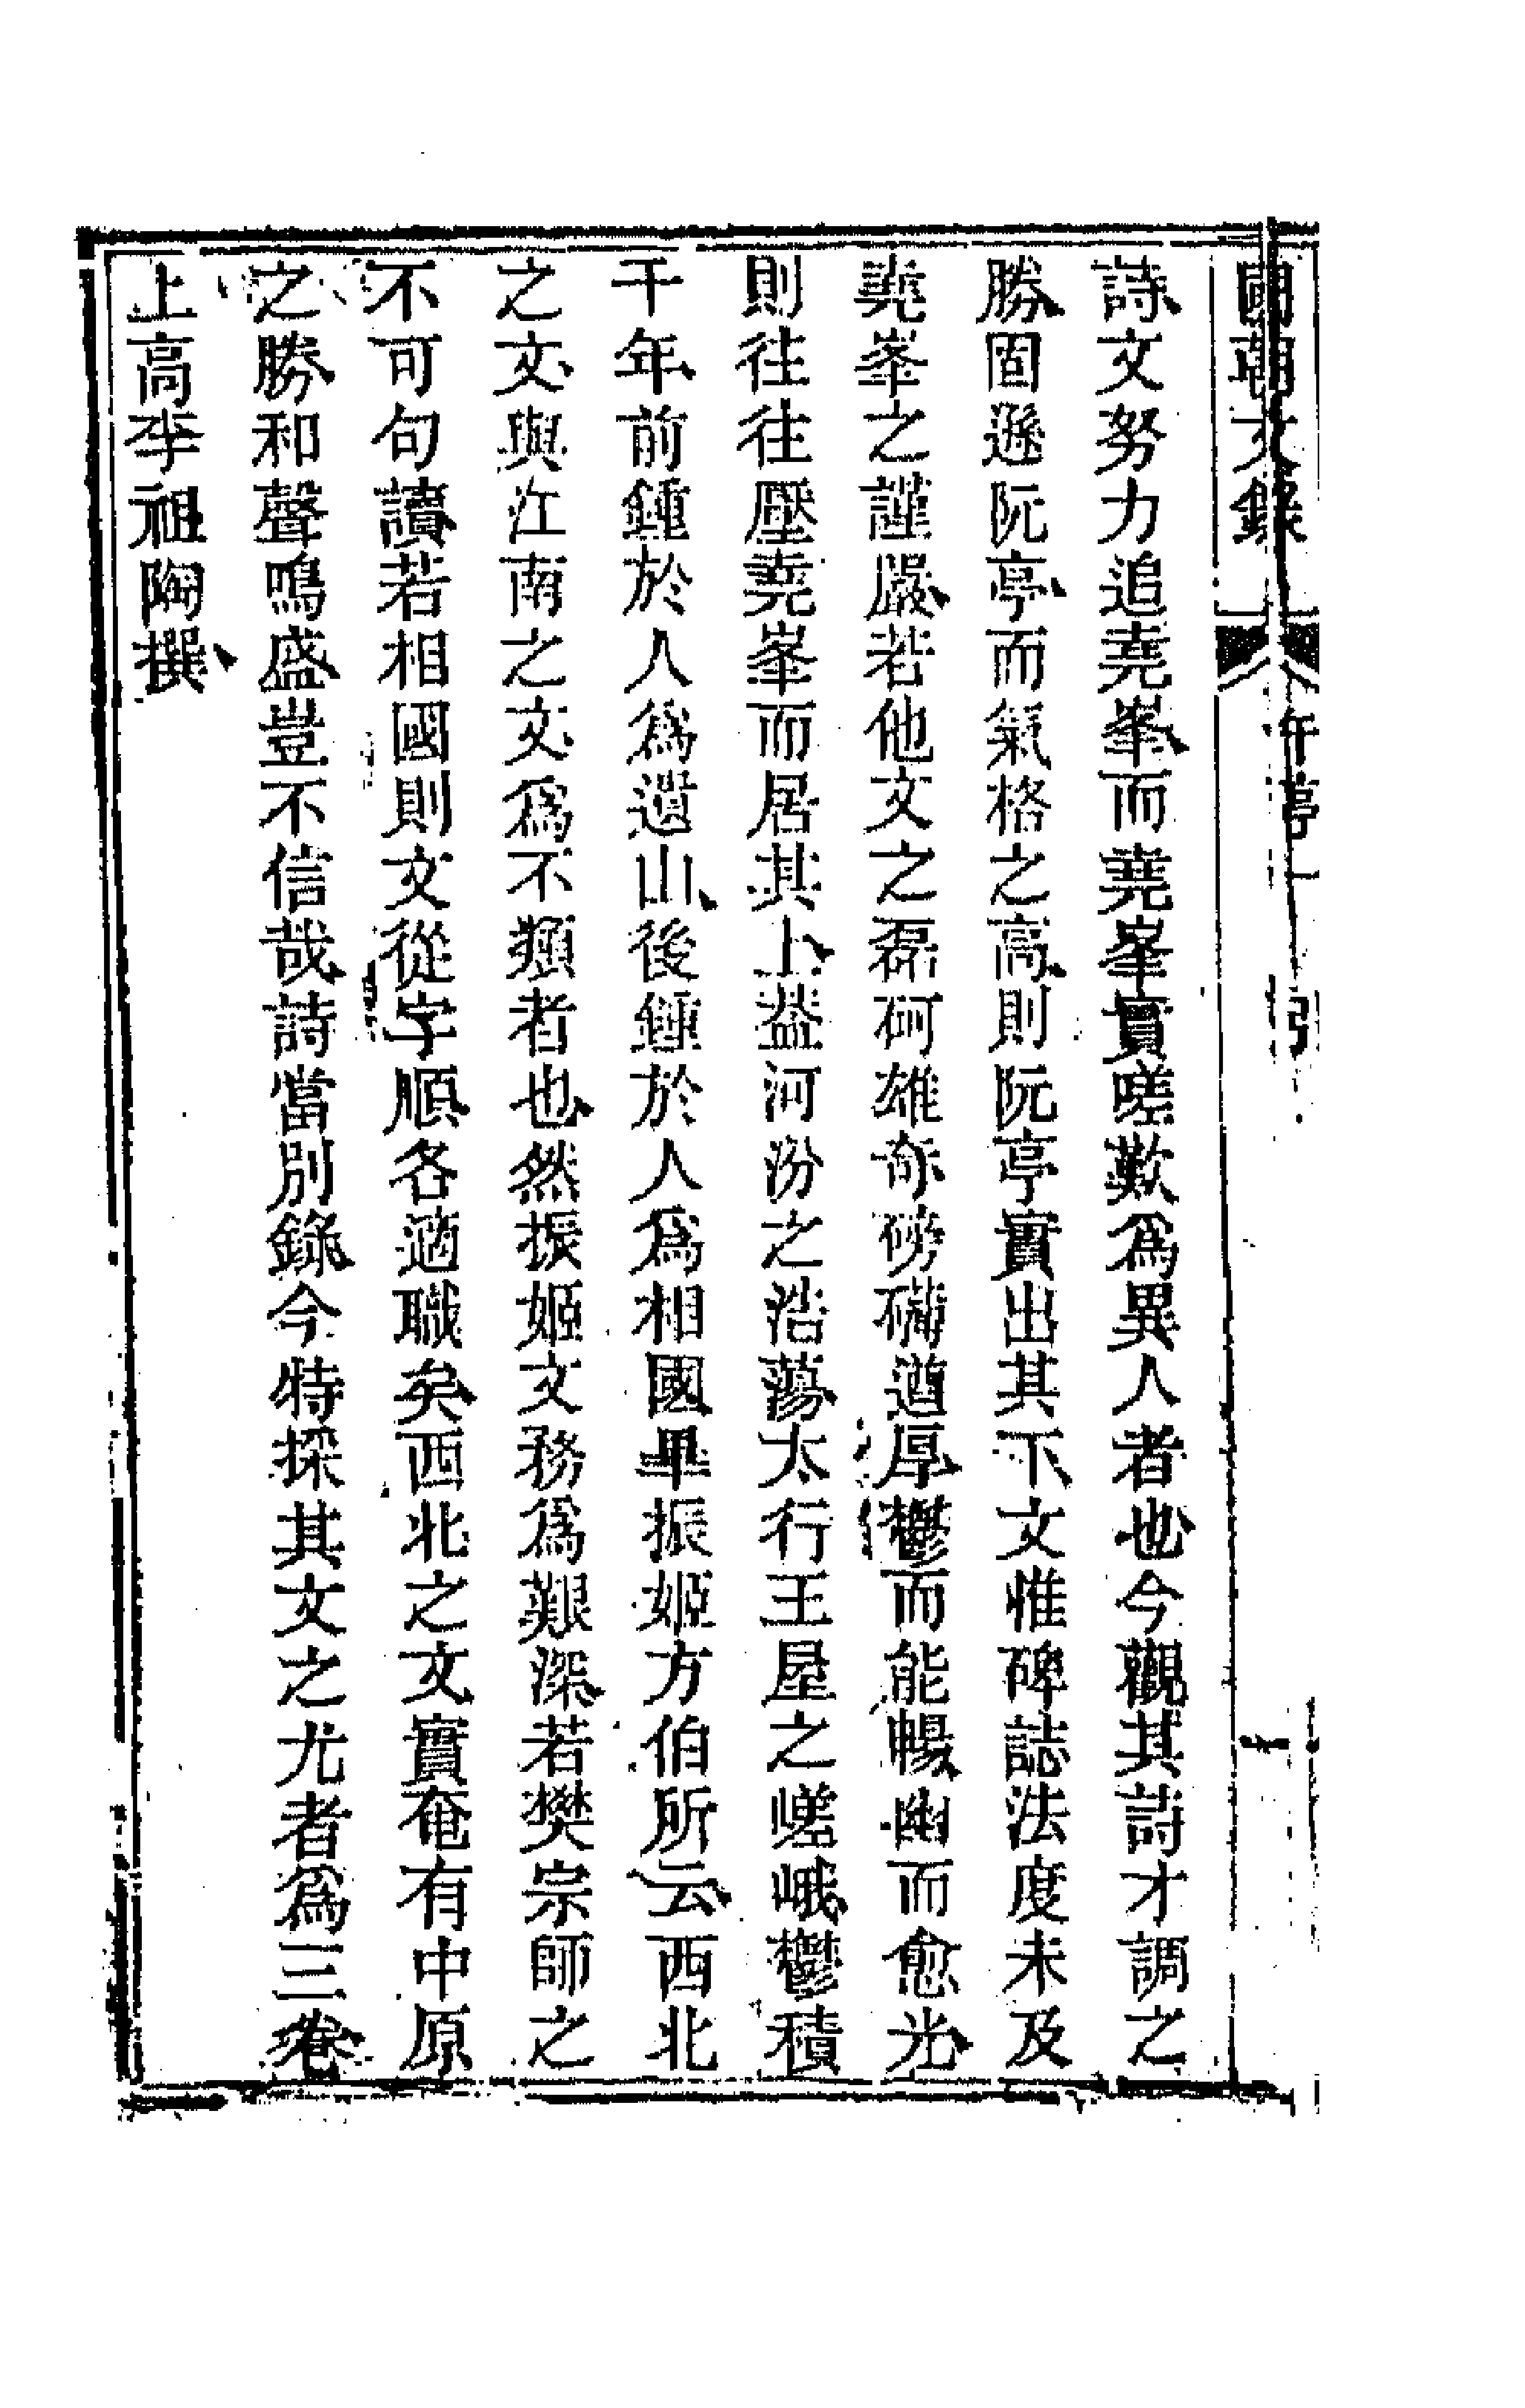 國朝文錄　午亭　引　一
詩文努力追堯峯而堯峯實嗟歎爲異人者也今觀其詩才調之
勝固遜阮亭而氣格之高則阮亭實出其下文惟碑誌法度未及
堯峯之謹嚴若他文之磊砢雄奇磅礴遒厚鬱而能暢幽而愈光
則往往壓堯峯而居其上蓋河汾之浩蕩太行王屋之嵯峨鬱積
千年前鍾於人爲遺山後鍾於人爲相國畢振姬方伯所云西北
之文與江南之文爲不類者也然振姬文務爲艱深若樊宗師之
不可句讀若相國則文從字順各適職矣西北之文實奄有中原
之勝和聲鳴盛豈不信哉詩當別錄今特採其文之尤者爲三卷
上高李祖陶撰